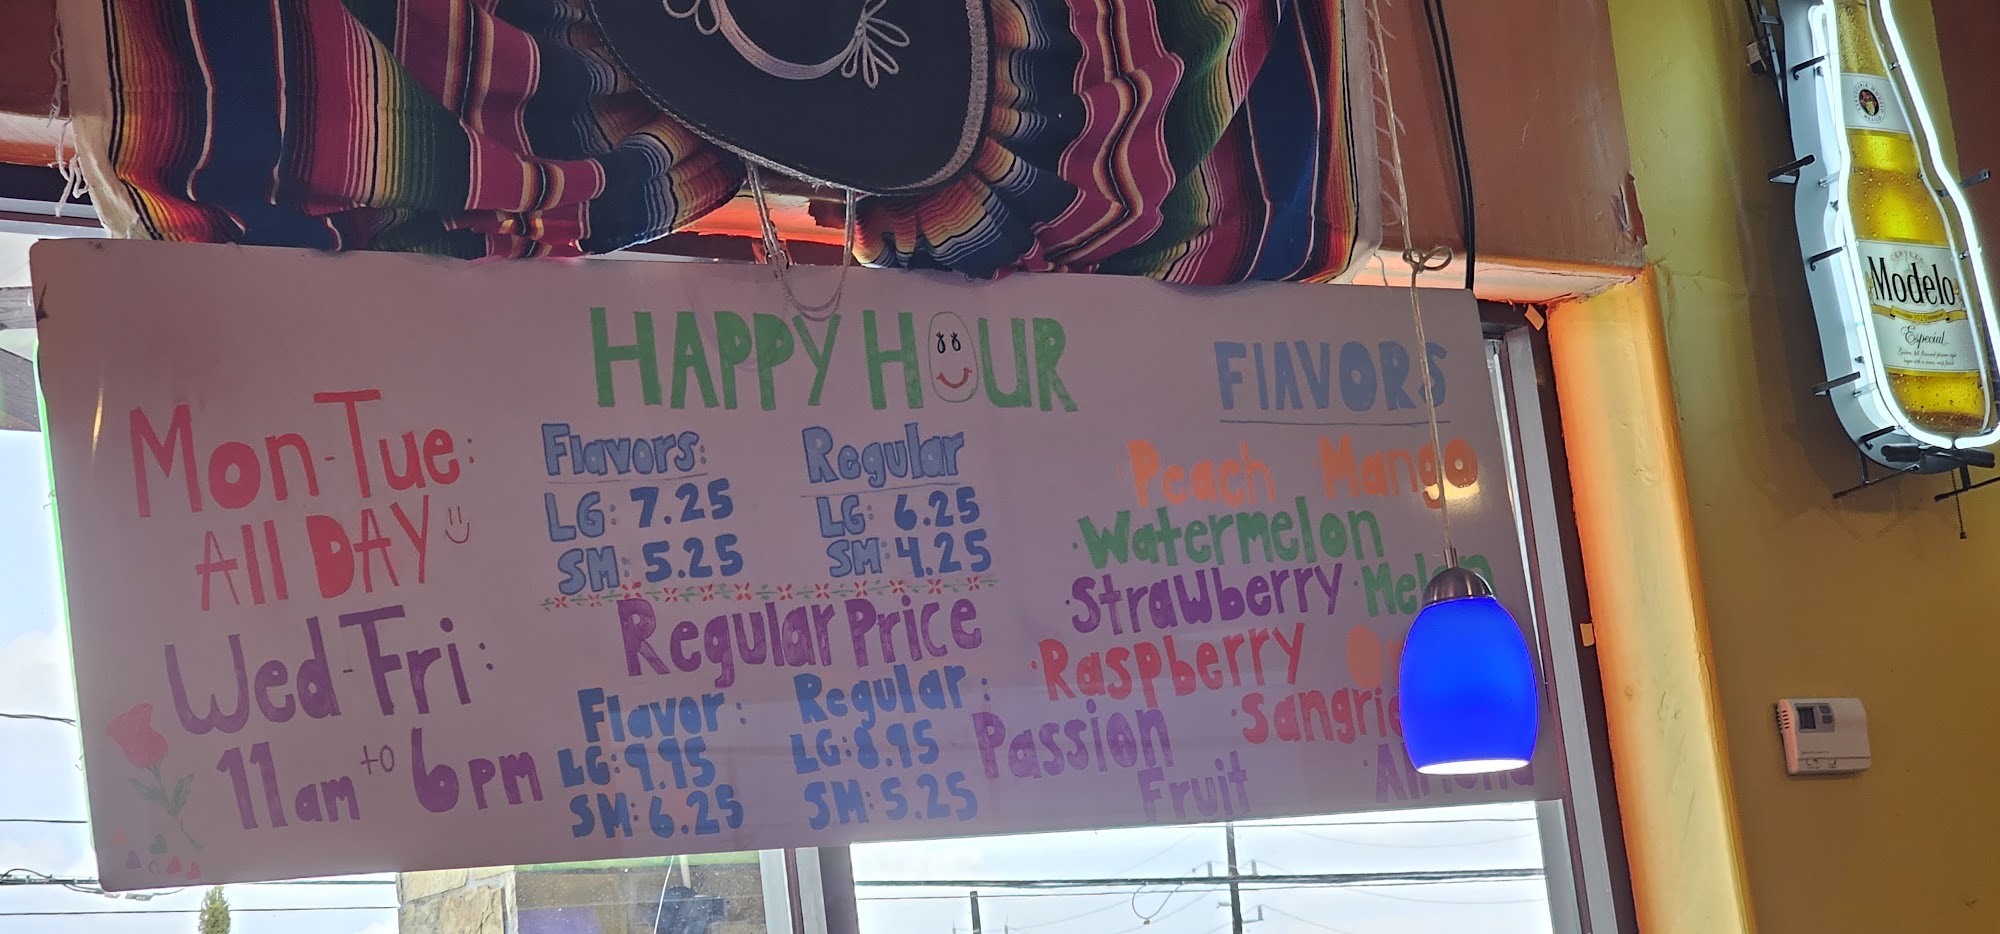 HAPPY HOUR
Mon-Tue:
All DAY
Wed-Fri:
11am to 6pm
Flavors:
LG: 7.25
SM: 5.25
Regular
LG: 6.25
SM: 4.25
Regular Price
Flavor:
LG: 9.95
SM: 6.25
Regular:
LG: 8.95
SM: 5.25
FlAVORS
Peach Mango
Watermelon
Strawberry
Raspberry
Passion
Fruit
Modelo
Especial